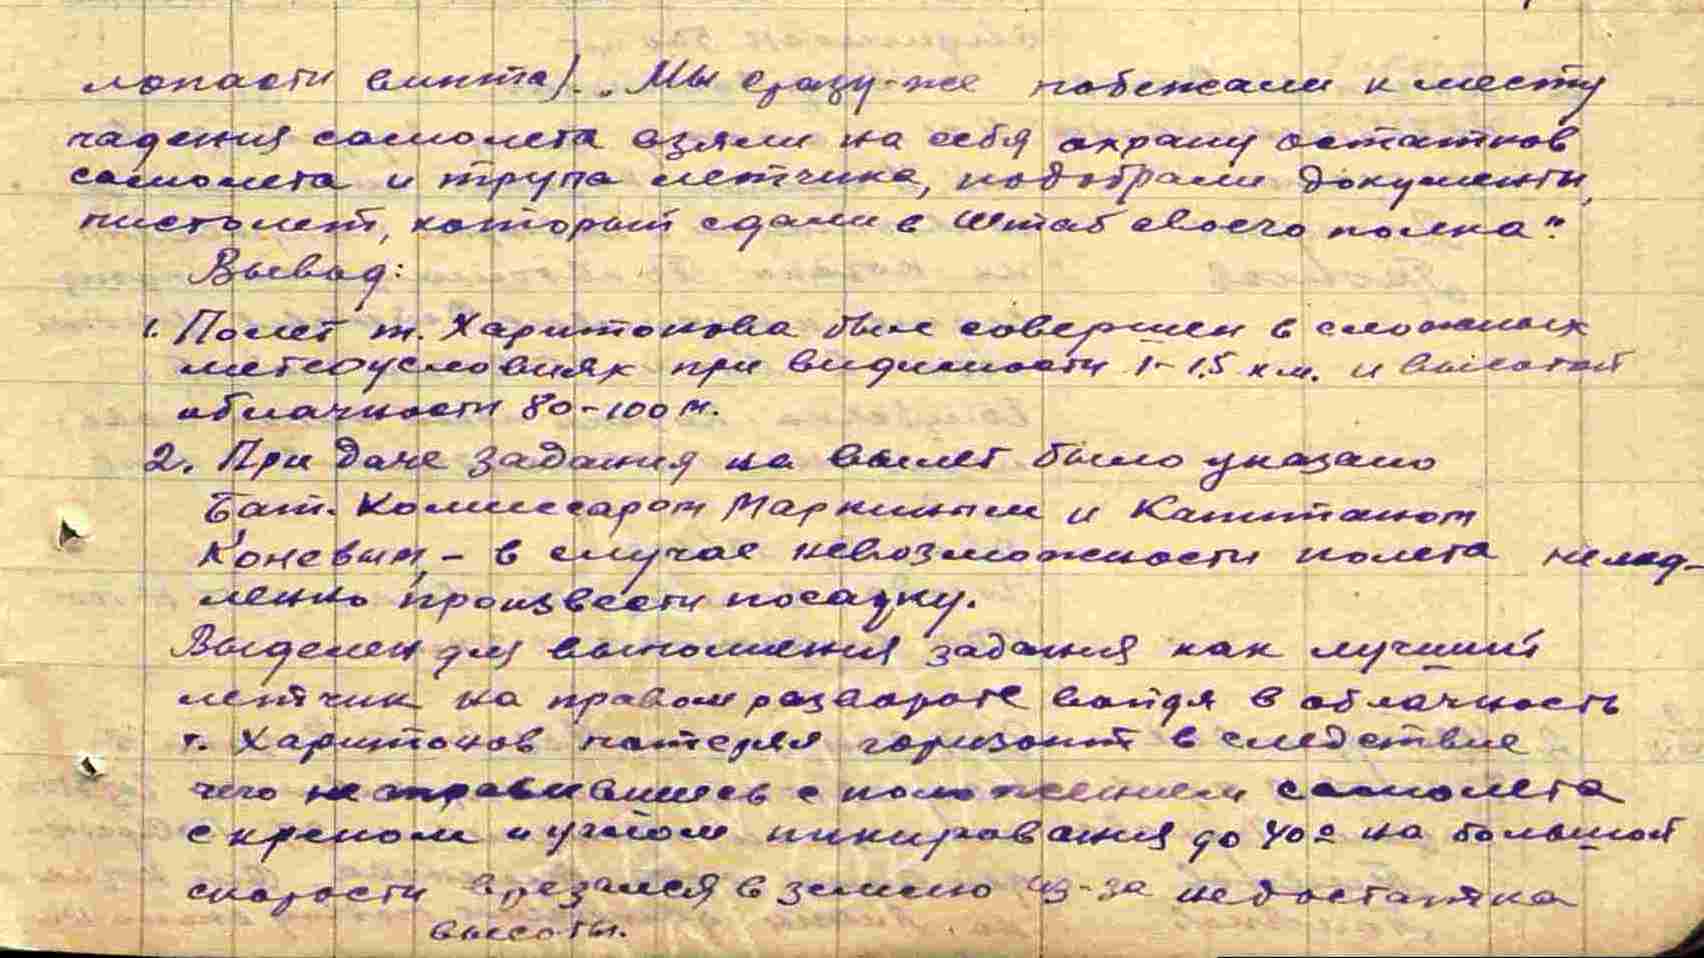 лопасти винта). „Мы сразу-же побежали к месту
падения самолета взяли на себя охрану остатков
самолета и трупа летчика, подобрали документы,
пистолет, который сдали в Штаб своего полка".
Вывод:
1. Полет т. Харитонова был совершен в сложных
метеоусловиях при видимости 1-1,5 км. и высотой
облачности 80-100 м.
2. При даче задания на вылет было указано
Бат. Комиссаром Маркиным и Капитаном
Коневым, - в случае невозможности полета немед-
ленно произвести посадку.
Выделен для выполнения задания как лучший
летчик на правом развороте войдя в облачность
т. Харитонов потерял горизонт в следствие
чего не справившись с положением самолета
с креном и углом пикирования до 40° на большой
скорости врезался в землю из-за недостатка
высоты.